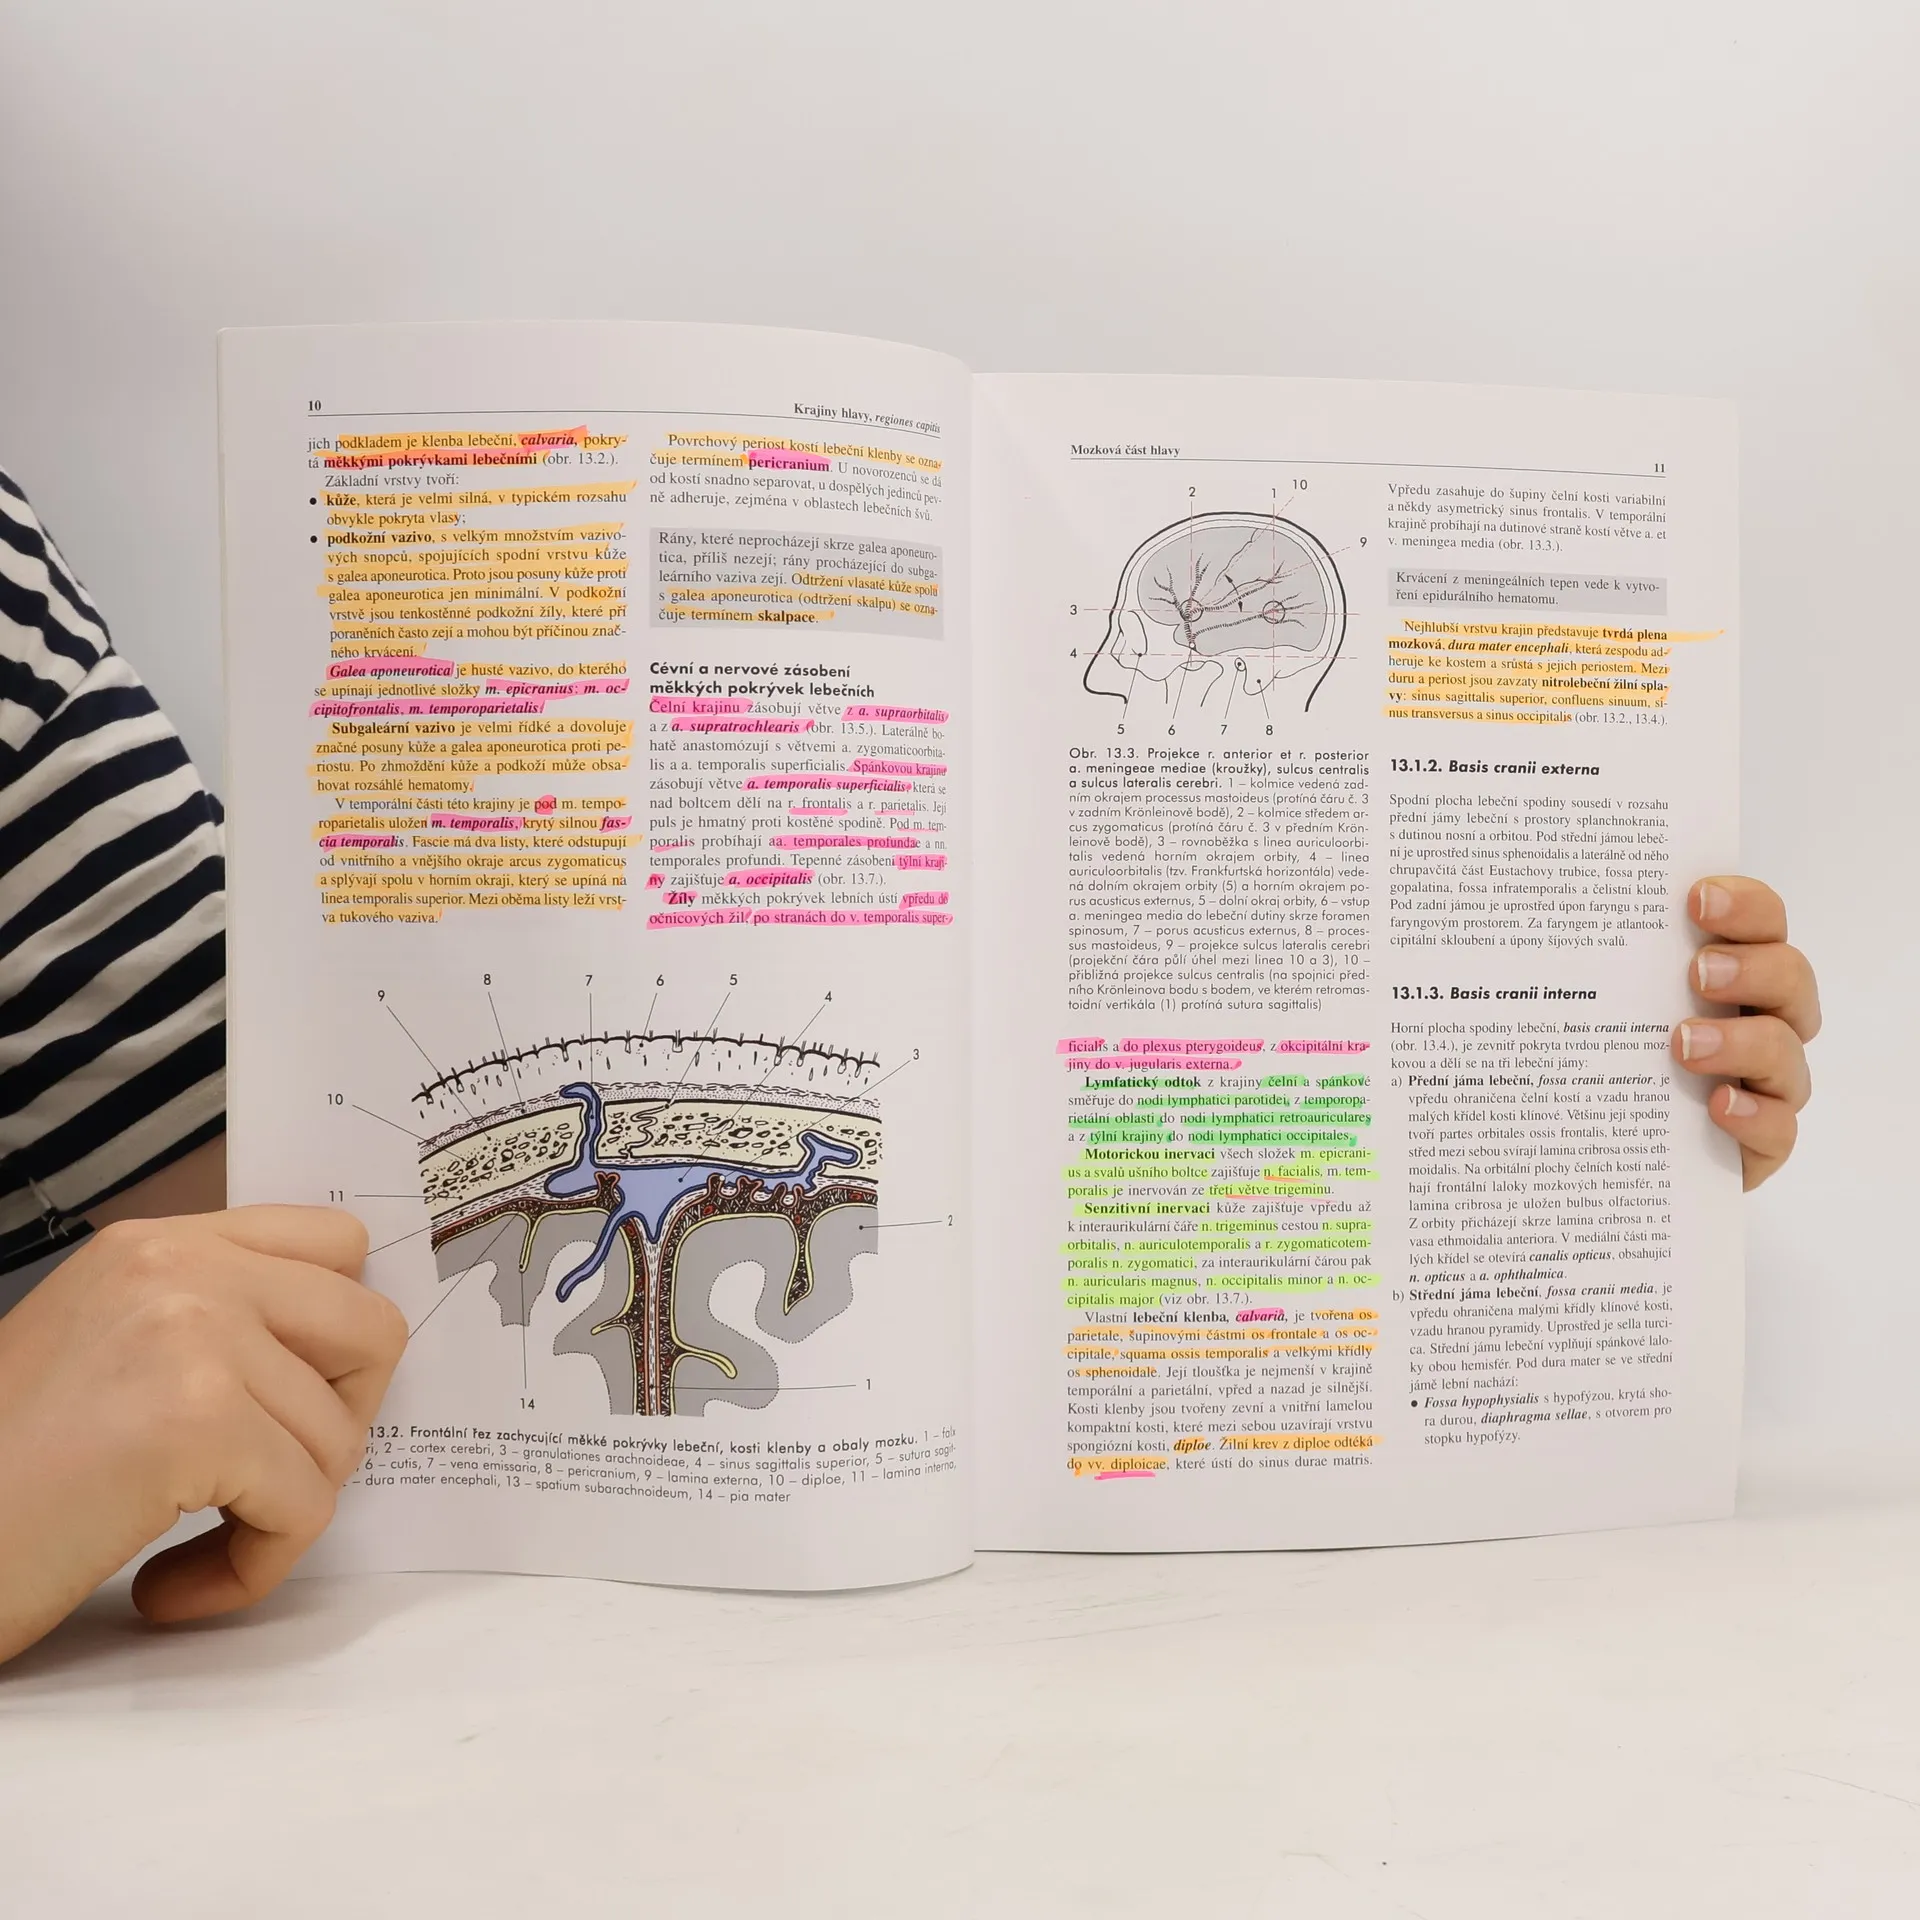 10
Krajiny hlavy, regiones capitis
jich podkladem je klenba lebeční, calvaria, pokry-
tá měkkými pokrývkami lebečními (obr. 13.2.).
Základní vrstvy tvoří:
• kůže, která je velmi silná, v typickém rozsahu
obvykle pokryta vlasy;
• podkožní vazivo, s velkým množstvím vazivo-
vých snopců, spojujících spodní vrstvu kůže
s galea aponeurotica. Proto jsou posuny kůže proti
galea aponeurotica jen minimální. V podkožní
vrstvě jsou tenkostěnné podkožní žíly, které při
poraněních často zejí a mohou být příčinou znač-
ného krvácení.
Galea aponeurotica je husté vazivo, do kterého
se upínají jednotlivé složky m. epicranius: m. oc-
cipitofrontalis, m. temporoparietalis.
Subgaleární vazivo je velmi řídké a dovoluje
značné posuny kůže a galea aponeurotica proti pe-
riostu. Po zhmoždění kůže a podkoží může obsa-
hovat rozsáhlé hematomy.
V temporální části této krajiny je pod m. tempo-
roparietalis uložen m. temporalis, krytý silnou fas-
cia temporalis. Fascie má dva listy, které odstupují
od vnitřního a vnějšího okraje arcus zygomaticus
a splývají spolu v horním okraji, který se upíná na
linea temporalis superior. Mezi oběma listy leží vrst-
va tukového vaziva.
Povrchový periost kostí lebeční klenby se ozna-
čuje termínem pericranium. U novorozenců se dá
od kostí snadno separovat, u dospělých jedinců pev-
ně adheruje, zejména v oblastech lebečních švů.
Rány, které neprocházejí skrze galea aponeuro-
tica, příliš nezejí; rány procházející do subga-
leárního vaziva zejí. Odtržení vlasaté kůže spolu
s galea aponeurotica (odtržení skalpu) se ozna-
čuje termínem skalpace.
Cévní a nervové zásobení
měkkých pokrývek lebečních
Čelní krajinu zásobují větve z a. supraorbitalis
a z a. supratrochlearis (obr. 13.5.). Laterálně bo-
hatě anastomózují s větvemi a. zygomaticoorbita-
lis a a. temporalis superficialis. Spánkovou krajinu
zásobují větve a. temporalis superficialis, která se
nad boltcem dělí na r. frontalis a r. parietalis. Její
puls je hmatný proti kostěné spodině. Pod m. tem-
poralis probíhají aa. temporales profundae a nn.
temporales profundi. Tepenné zásobení týlní kraji-
ny zajišťuje a. occipitalis (obr. 13.7.).
Žíly měkkých pokrývek lebních ústí vpředu do
očnicových žil, po stranách do v. temporalis super-
9
8
7
6
5
4
3
10
11
2
14
1
13.2. Frontální řez zachycující měkké pokrývky lebeční, kosti klenby a obaly mozku. 1 – falx
ri, 2 – cortex cerebri, 3 – granulationes arachnoideae, 4 – sinus sagittalis superior, 5 – sutura sagit-
, 6 – cutis, 7 – vena emissaria, 8 – pericranium, 9 – lamina externa, 10 – diploe, 11 – lamina interna,
– dura mater encephali, 13 – spatium subarachnoideum, 14 – pia mater
Mozková část hlavy
11
2
1
10
9
3
4
5
6
7
8
Obr. 13.3. Projekce r. anterior et r. posterior
a. meningeae mediae (kroužky), sulcus centralis
a sulcus lateralis cerebri. 1 – kolmice vedená zad-
ním okrajem processus mastoideus (protíná čáru č. 3
v zadním Krönleinově bodě), 2 – kolmice středem ar-
cus zygomaticus (protíná čáru č. 3 v předním Krön-
leinově bodě), 3 – rovnoběžka s linea auriculoorbi-
talis vedená horním okrajem orbity, 4 – linea
auriculoorbitalis (tzv. Frankfurtská horizontála) vede-
ná dolním okrajem orbity (5) a horním okrajem po-
rus acusticus externus, 5 – dolní okraj orbity, 6 – vstup
a. meningea media do lebeční dutiny skrze foramen
spinosum, 7 – porus acusticus externus, 8 – proces-
sus mastoideus, 9 – projekce sulcus lateralis cerebri
(projekční čára půlí úhel mezi linea 10 a 3), 10 –
přibližná projekce sulcus centralis (na spojnici před-
ního Krönleinova bodu s bodem, ve kterém retromas-
toidní vertikála (1) protíná sutura sagittalis)
ficialis a do plexus pterygoideus, z okcipitální kra-
jiny do v. jugularis externa.
Lymfatický odtok z krajiny čelní a spánkové
směřuje do nodi lymphatici parotidei, z temporopa-
rietální oblasti do nodi lymphatici retroauriculares
a z týlní krajiny do nodi lymphatici occipitales.
Motorickou inervaci všech složek m. epicrani-
us a svalů ušního boltce zajišťuje n. facialis, m. tem-
poralis je inervován ze třetí větve trigeminu.
Senzitivní inervaci kůže zajišťuje vpředu až
k interaurikulární čáře n. trigeminus cestou n. supra-
orbitalis, n. auriculotemporalis a r. zygomaticotem-
poralis n. zygomatici, za interaurikulární čárou pak
n. auricularis magnus, n. occipitalis minor a n. oc-
cipitalis major (viz obr. 13.7.).
Vlastní lebeční klenba, calvaria, je tvořena os
parietale, šupinovými částmi os frontale a os oc-
cipitale, squama ossis temporalis a velkými křídly
os sphenoidale. Její tloušťka je nejmenší v krajině
temporální a parietální, vpřed a nazad je silnější.
Kosti klenby jsou tvořeny zevní a vnitřní lamelou
kompaktní kosti, které mezi sebou uzavírají vrstvu
spongiózní kosti, diploe. Žilní krev z diploe odtéká
do vv. diploicae, které ústí do sinus durae matris.
Vpředu zasahuje do šupiny čelní kosti variabilní
a někdy asymetrický sinus frontalis. V temporální
krajině probíhají na dutinové straně kostí větve a. et
v. meningea media (obr. 13.3.).
Krvácení z meningeálních tepen vede k vytvo-
ření epidurálního hematomu.
Nejhlubší vrstvu krajin představuje tvrdá plena
mozková, dura mater encephali, která zespodu ad-
heruje ke kostem a srůstá s jejich periostem. Mezi
duru a periost jsou zavzaty nitrolebeční žilní spla-
vy: sinus sagittalis superior, confluens sinuum, si-
nus transversus a sinus occipitalis (obr. 13.2., 13.4.).
13.1.2. Basis cranii externa
Spodní plocha lebeční spodiny sousedí v rozsahu
přední jámy lebeční s prostory splanchnokrania,
s dutinou nosní a orbitou. Pod střední jámou lebeč-
ní je uprostřed sinus sphenoidalis a laterálně od něho
chrupavčitá část Eustachovy trubice, fossa ptery-
gopalatina, fossa infratemporalis a čelistní kloub.
Pod zadní jámou je uprostřed úpon faryngu s para-
faryngovým prostorem. Za faryngem je atlantook-
cipitální skloubení a úpony šíjových svalů.
13.1.3. Basis cranii interna
Horní plocha spodiny lebeční, basis cranii interna
(obr. 13.4.), je zevnitř pokryta tvrdou plenou moz-
kovou a dělí se na tři lebeční jámy:
a) Přední jáma lebeční, fossa cranii anterior, je
vpředu ohraničena čelní kostí a vzadu hranou
malých křídel kosti klínové. Většinu její spodiny
tvoří partes orbitales ossis frontalis, které upro-
střed mezi sebou svírají lamina cribrosa ossis eth-
moidalis. Na orbitální plochy čelních kostí nalé-
hají frontální laloky mozkových hemisfér, na
lamina cribrosa je uložen bulbus olfactorius.
Z orbity přicházejí skrze lamina cribrosa n. et
vasa ethmoidalia anteriora. V mediální části ma-
lých křídel se otevírá canalis opticus, obsahující
n. opticus a a. ophthalmica.
b) Střední jáma lebeční, fossa cranii media, je
vpředu ohraničena malými křídly klínové kosti,
vzadu hranou pyramidy. Uprostřed je sella turci-
ca. Střední jámu lebeční vyplňují spánkové lalo-
ky obou hemisfér. Pod dura mater se ve střední
jámě lební nachází:
• Fossa hypophysialis s hypofýzou, krytá sho-
ra durou, diaphragma sellae, s otvorem pro
stopku hypofýzy.